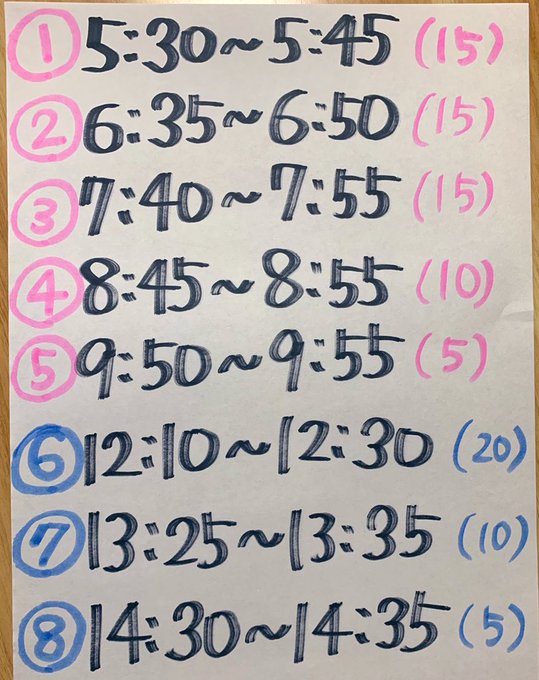 ① 5:30~5:45 (15)
② 6:35~6:50 (15)
③ 7:40~7:55 (15)
④ 8:45~8:55 (10)
⑤ 9:50~9:55 (5)
⑥ 12:10~12:30 (20)
⑦ 13:25~13:35 (10)
⑧ 14:30~14:35 (5)